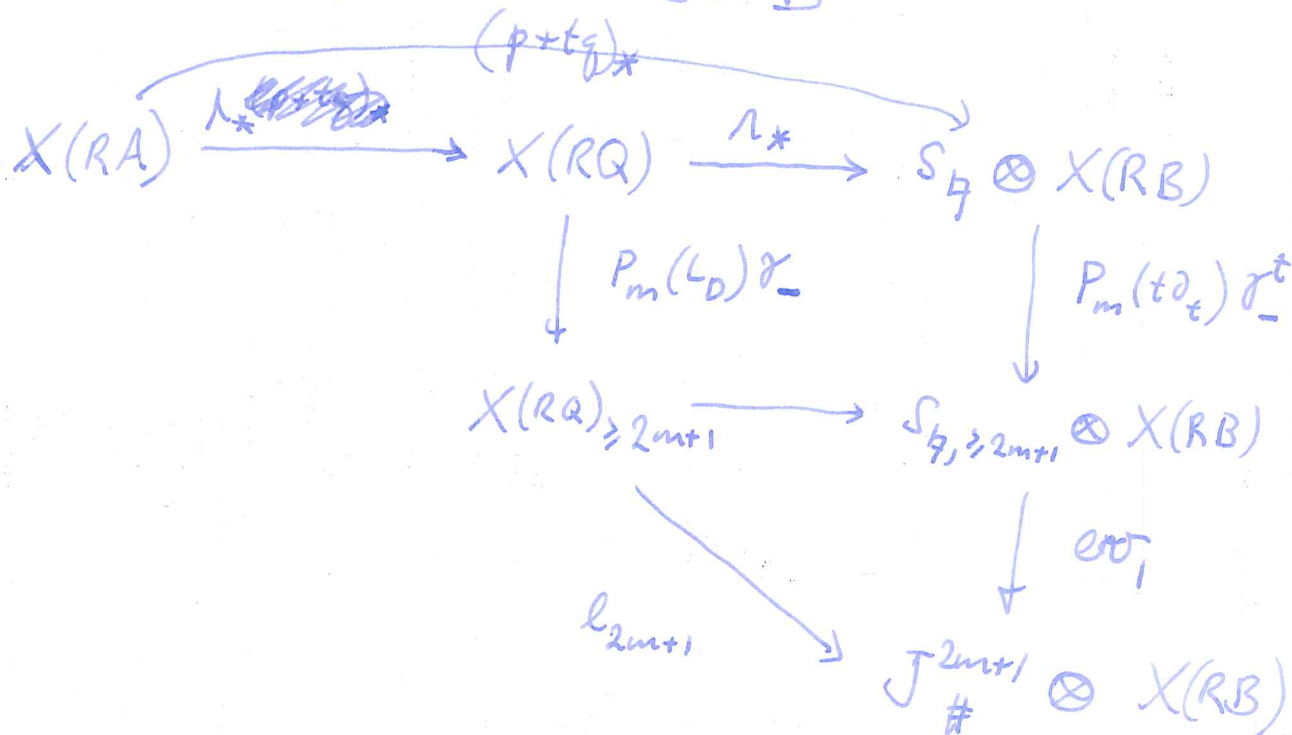 (p+tq)_*
X(RA) → X(RQ) →^{λ_*} S_♮ ⊗ X(RB)
P_m(L_D) γ_-
P_m(t∂_t) γ_-^t
X(RQ)_{≥2m+1} → S_{♮,≥2m+1} ⊗ X(RB)
ev_1
l_{2m+1}
J_#^{2m+1} ⊗ X(RB)